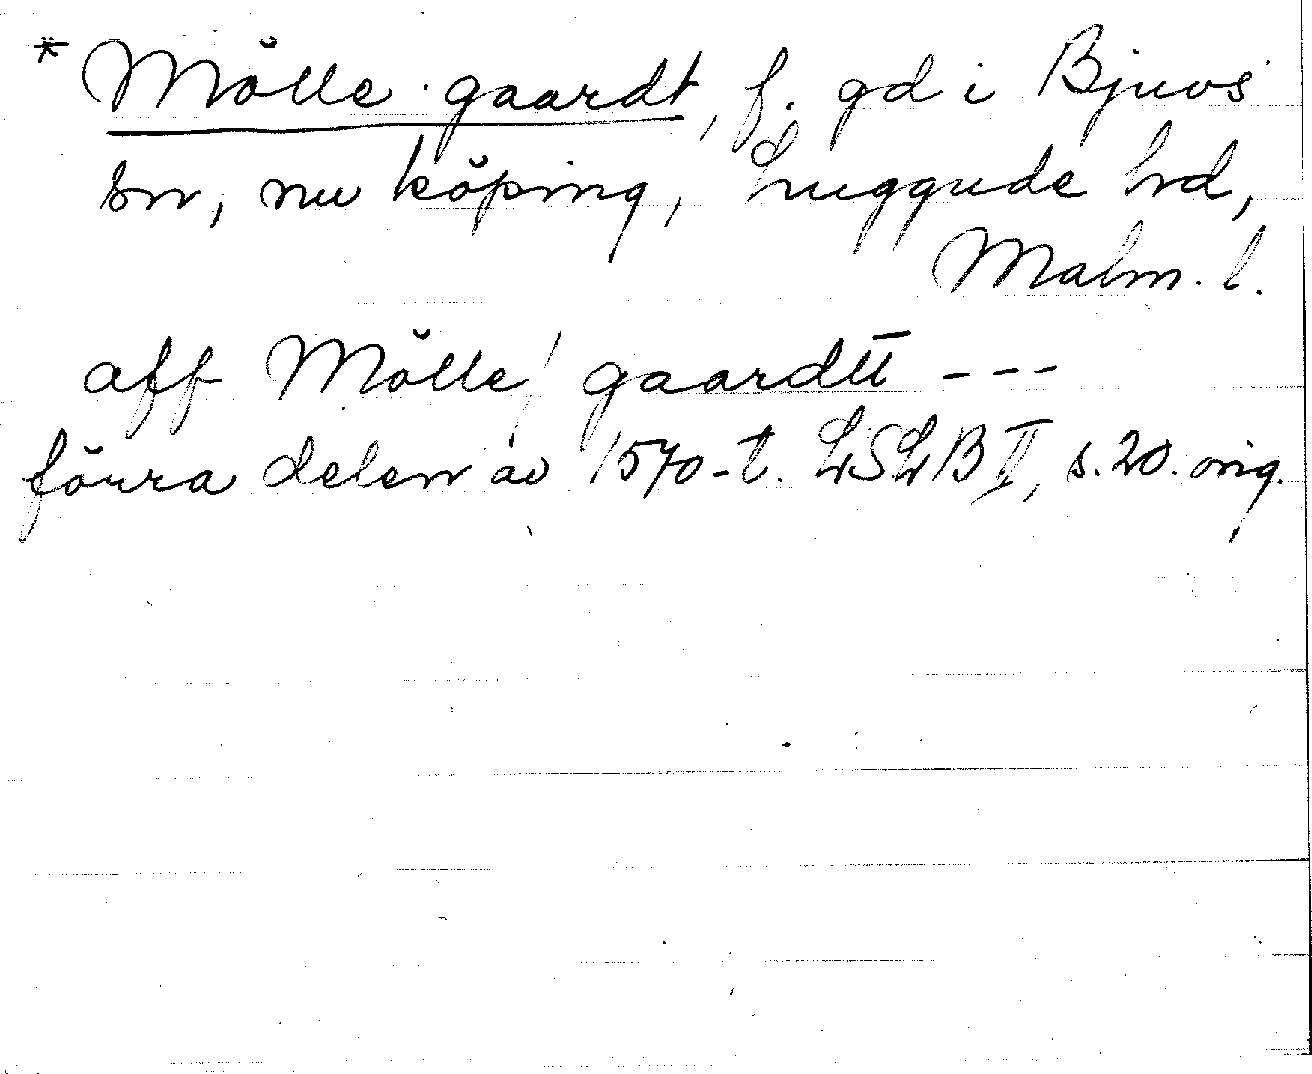 * Mölle gaardt, f. gd i Bjuvs
sn, nu köping, Luggude hd,
Malm. l.
aff Mölle/ gaardtt ---
förra delen av 1570-t. LSLB II, s. 20. orig.